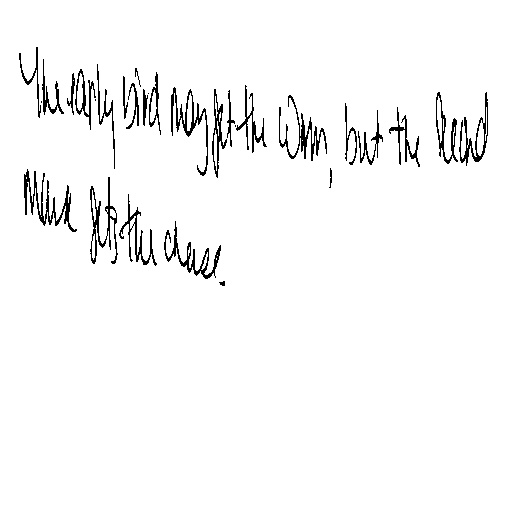 The early bird may get the Worm, but the
mouse gets the cheese.